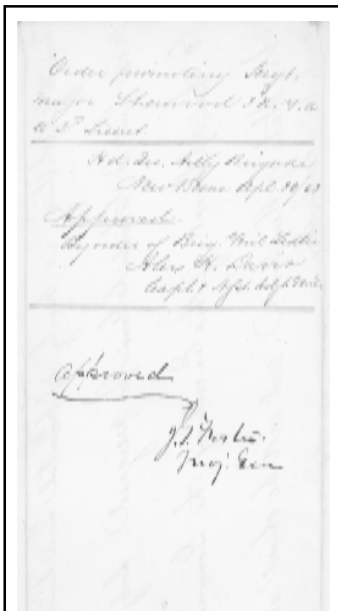 Order promoting Sergt.
Major Sherwood 3 N.Y.A
to 2d Lieut.
Hd. Qrs. Arty Brigade
New Berne Apl. 30/63
Approved
By order of Brig.
Alex H. Davis
Capt & A
Approved
J.G. Foster
Maj. Gen